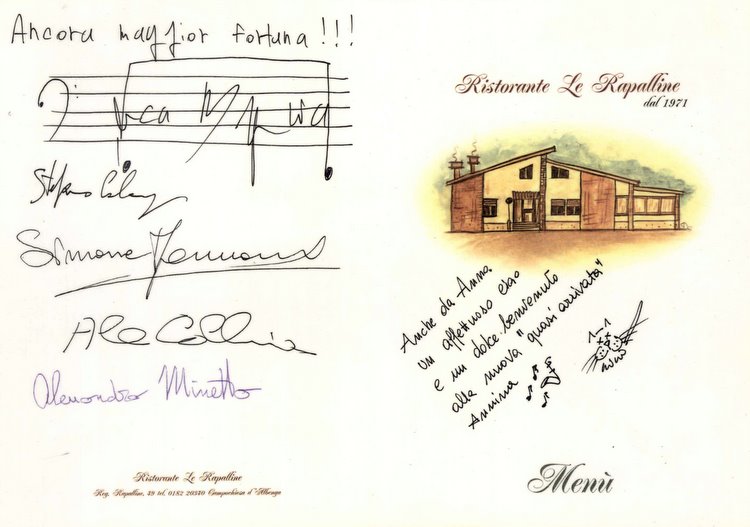 Ancora maggior fortuna!!!
Simone
Ale
Alessandro Minetto
Ristorante Le Rapalline
Reg. Rapalline, 49 tel. 0182 20370 Campochiesa d'Albenga
Ristorante Le Rapalline
dal 1971
Anche da Anna
un affettuoso ciao
e un dolce benvenuto
alla nuova "quasi arrivata"
Annina
Menù